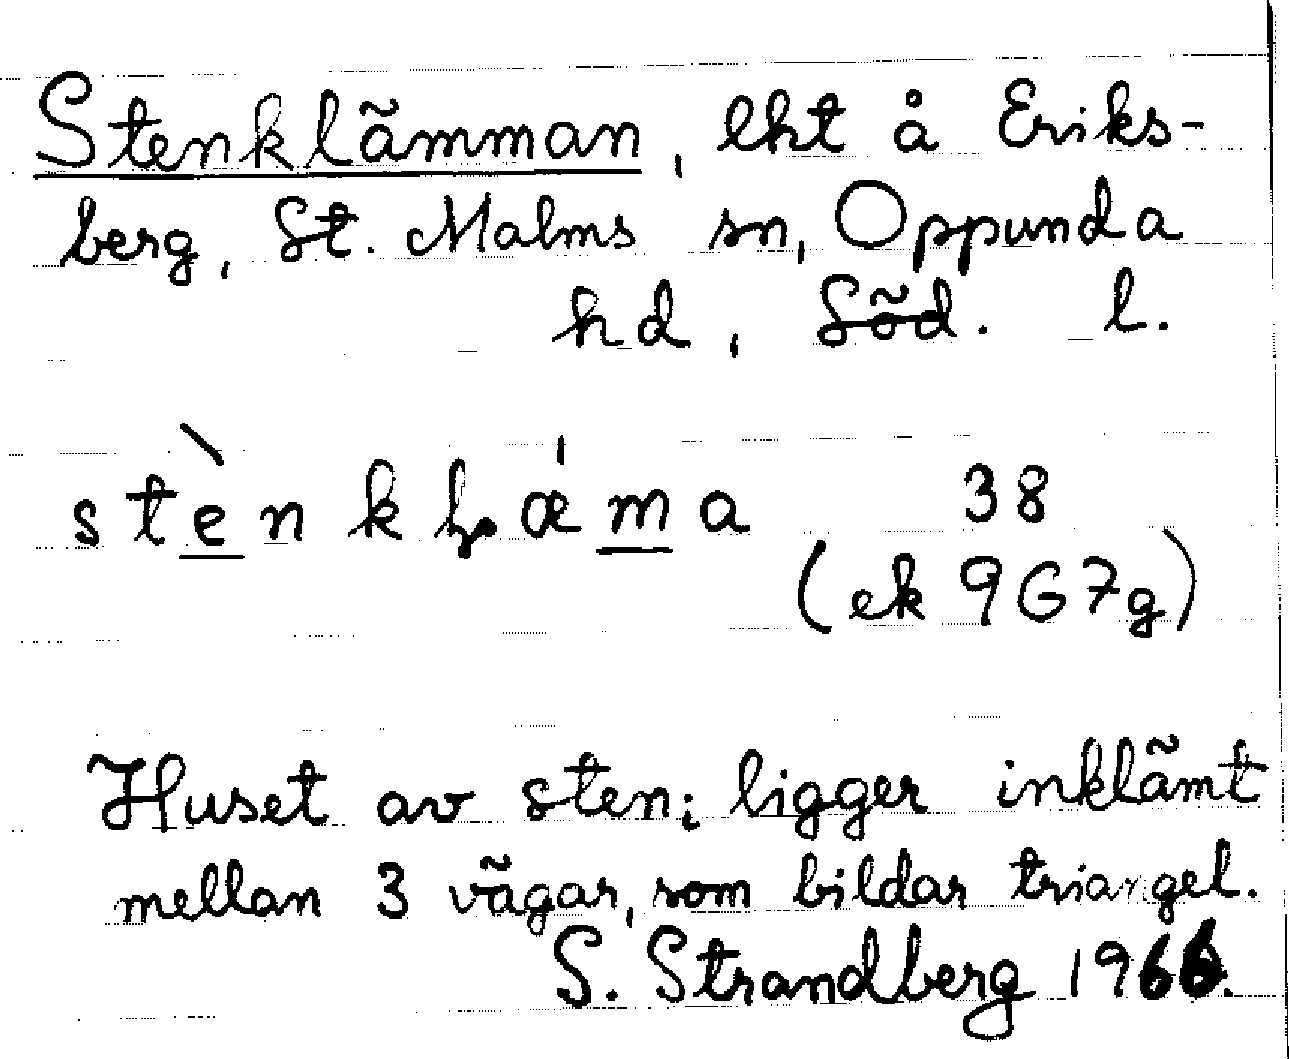 Stenklämman, lht å Eriks-
berg, St. Malms sn, Oppunda
hd, Söd. l.
stènkḷæ̀ma 38
(ek 9G7g)
Huset av sten; ligger inklämt
mellan 3 vägar, som bildar triangel.
S. Strandberg 1966.